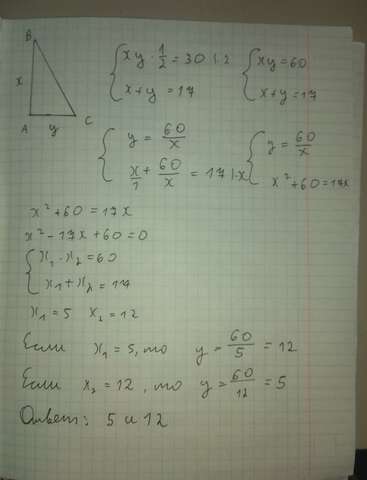 B
x
A y C
{ xy · 1/2 = 30 | · 2
x + y = 17
{ xy = 60
x + y = 17
{ y = 60/x
x/1 + 60/x = 17 | · x
{ y = 60/x
x² + 60 = 17x
x² + 60 = 17x
x² - 17x + 60 = 0
{ x₁ · x₂ = 60
x₁ + x₂ = 17
x₁ = 5 x₂ = 12
Если x₁ = 5, то y = 60/5 = 12
Если x₂ = 12, то y = 60/12 = 5
Ответ: 5 и 12